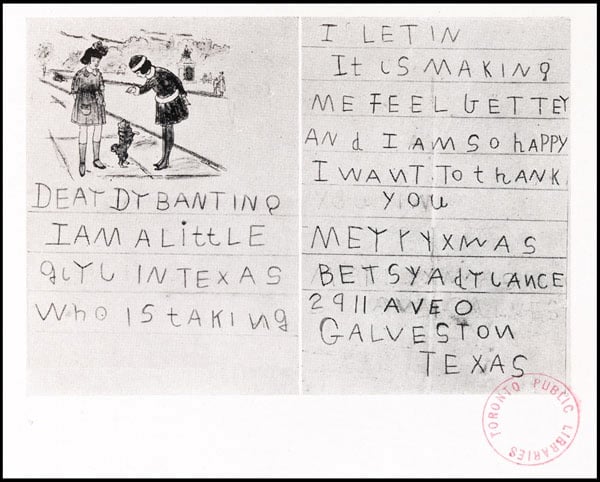 DEAY DY BANTING
I AM A LittLE
gLYL IN TEXAS
WhO IS tAKINg
I LETIN
It iS MAKING
ME FEEL bETTEY
ANd I AM SO hAPPY
I WANT TO thANK
YOU
MEYYY XMAS
BETSY AdYLANCE
2911 AVE O
GALVESTON
TEXAS
TORONTO PUBLIC LIBRARIES